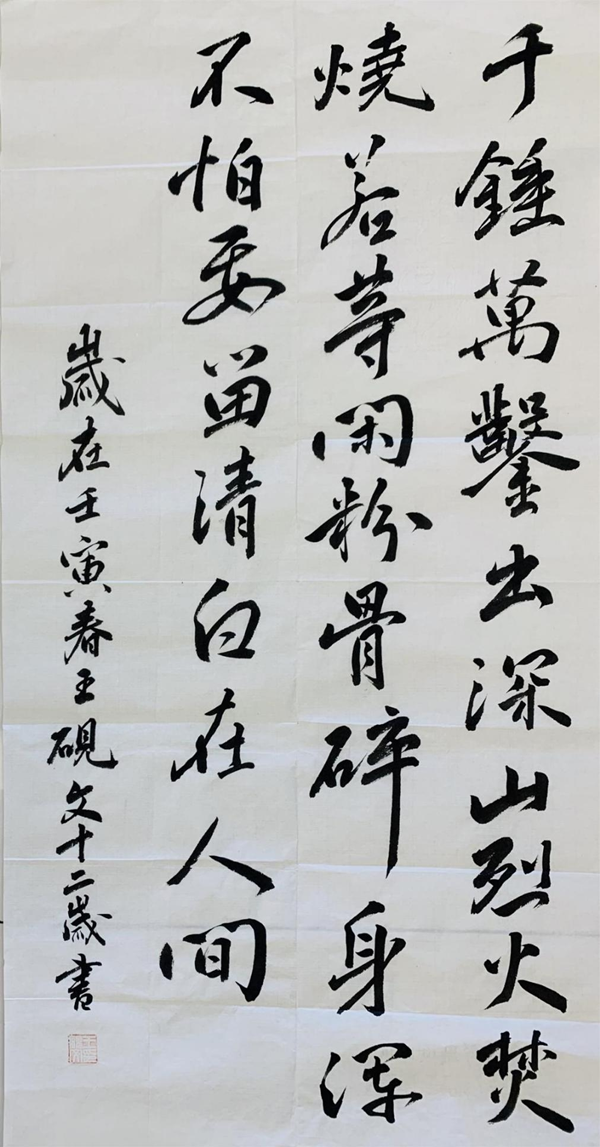 千錘萬鑿出深山烈火焚
燒若等閑粉骨碎身渾
不怕要留清白在人間
歲在壬寅春王硯文十二歲書